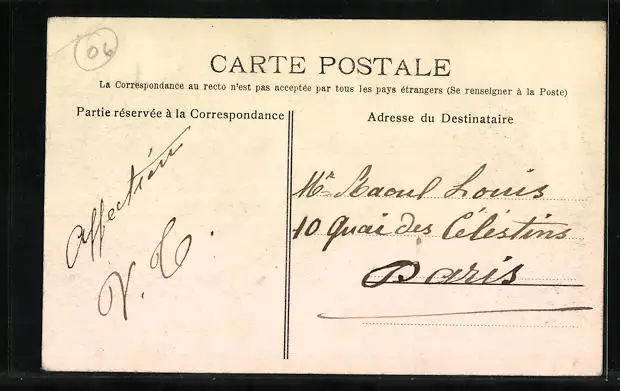 06
CARTE POSTALE
La Correspondance au recto n'est pas acceptée par tous les pays étrangers (Se renseigner à la Poste)
Partie réservée à la Correspondance
Affection
V. C.
Adresse du Destinataire
Mr Raoul Louis
10 Quai des Célestins
Paris